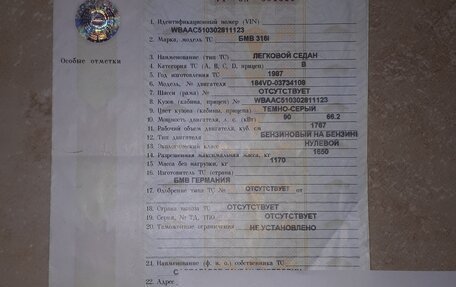 1. Идентификационный номер (VIN)
WBAAC510302811123
2. Марка, модель ТС БМВ 316I
Особые отметки
3. Наименование (тип ТС) ЛЕГКОВОЙ СЕДАН
4. Категория ТС (А, В, С, D, прицеп) B
5. Год изготовления ТС 1987
6. Модель, № двигателя 184VD-03734108
7. Шасси (рама) № ОТСУТСТВУЕТ
8. Кузов (кабина, прицеп) № WBAAC510302811123
9. Цвет кузова (кабины, прицепа) ТЕМНО-СЕРЫЙ
10. Мощность двигателя, л. с. (кВт) 90 66.2
11. Рабочий объем двигателя, куб. см 1767
12. Тип двигателя БЕНЗИНОВЫЙ НА БЕНЗИНЕ
13. Экологический класс НУЛЕВОЙ
14. Разрешенная максимальная масса, кг 1650
15. Масса без нагрузки, кг 1170
16. Изготовитель ТС (страна)
БМВ ГЕРМАНИЯ
17. Одобрение типа ТС № ОТСУТСТВУЕТ от
18. Страна вывоза ТС ОТСУТСТВУЕТ
19. Серия, № ТД, ТПО ОТСУТСТВУЕТ
20. Таможенные ограничения НЕ УСТАНОВЛЕНО
21. Наименование (ф. и. о.) собственника ТС
22. Адрес